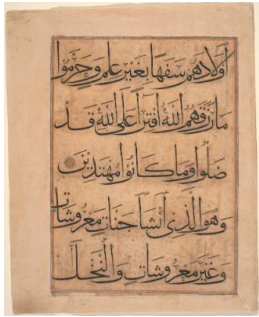 أَوْلَادَهُمْ سَفَهًا بِغَيْرِ عِلْمٍ وَحَرَّمُوا
مَا رَزَقَهُمُ اللَّهُ افْتِرَاءً عَلَى اللَّهِ قَدْ
ضَلُّوا وَمَا كَانُوا مُهْتَدِينَ
وَهُوَ الَّذِي أَنْشَأَ جَنَّاتٍ مَعْرُوشَاتٍ
وَغَيْرَ مَعْرُوشَاتٍ وَالنَّخْلَ